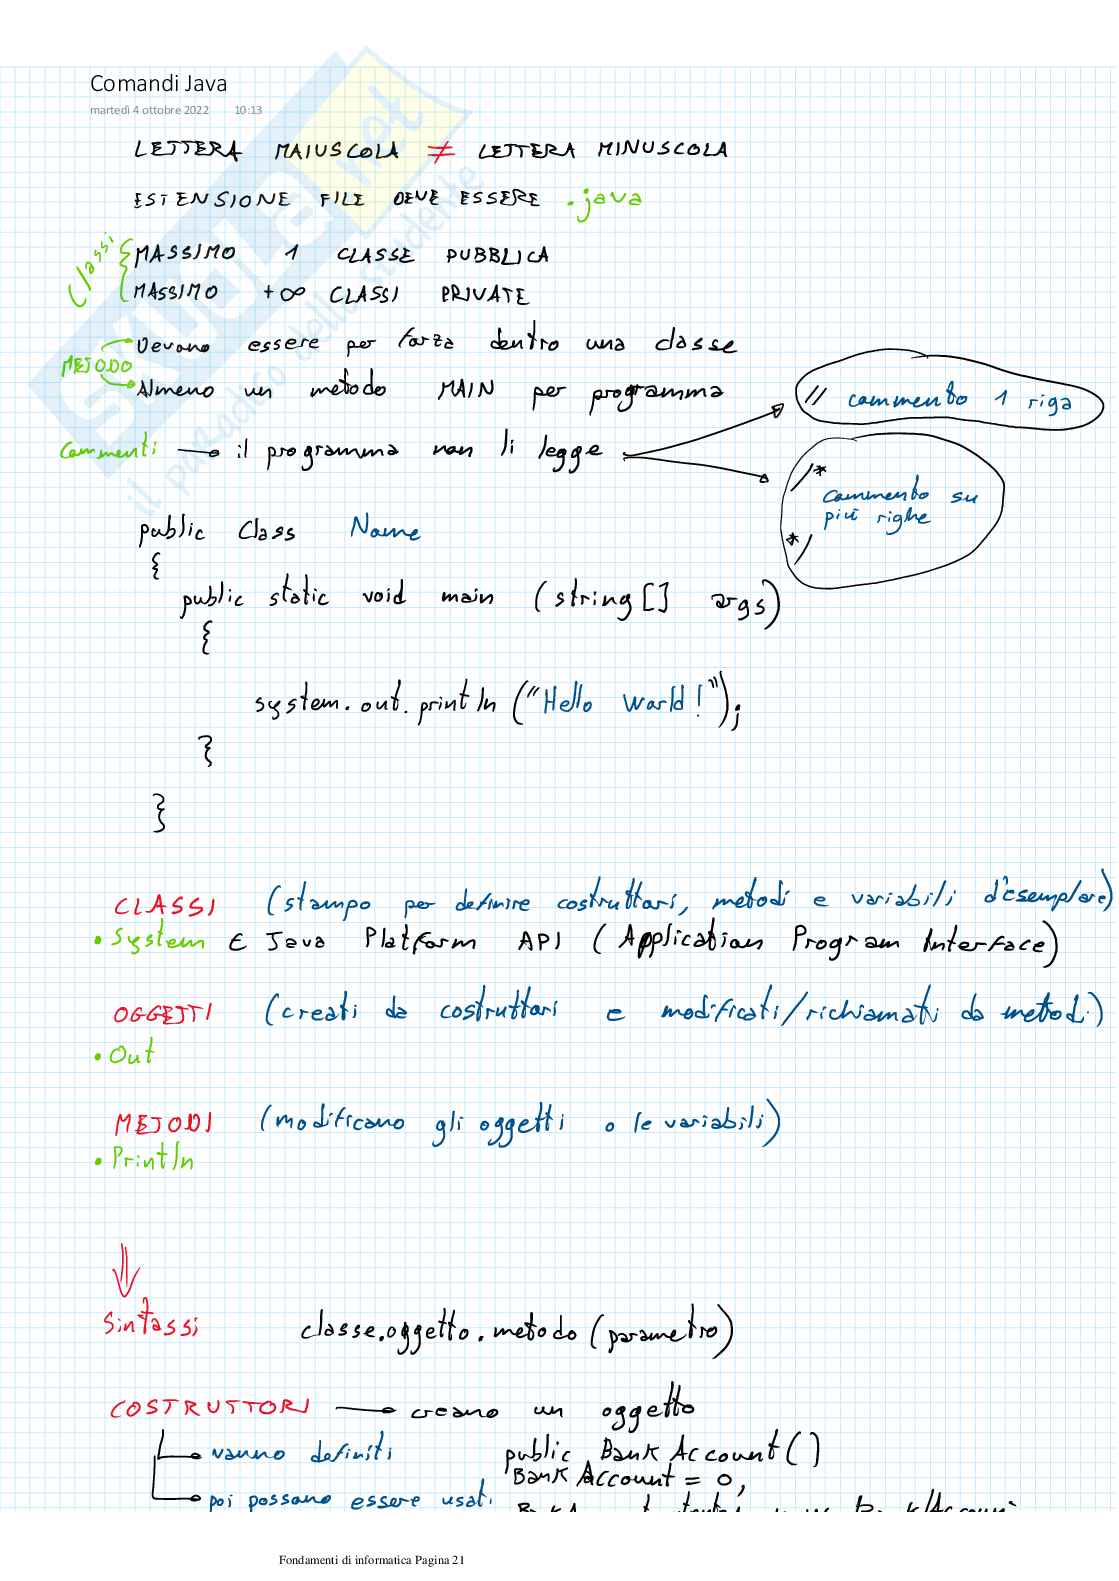 Comandi Java
martedì 4 ottobre 2022 10:13
LETTERA MAIUSCOLA ≠ LETTERA MINUSCOLA
ESTENSIONE FILE DEVE ESSERE .java
Classi
MASSIMO 1 CLASSE PUBBLICA
MASSIMO +∞ CLASSI PRIVATE
METODO
Devono essere per forza dentro una classe
Almeno un metodo MAIN per programma
Commenti → il programma non li legge
// commento 1 riga
/*
commento su
più righe
*/
public Class Name
{
public static void main (string[] args)
{
system.out.println ("Hello World!");
}
}
CLASSI (stampo per definire costruttori, metodi e variabili d'esemplare)
• System ∈ Java Platform API (Application Program Interface)
OGGETTI (creati da costruttori e modificati/richiamati da metodi)
• Out
METODI (modificano gli oggetti o le variabili)
• Println
⇓
Sintassi classe.oggetto.metodo(parametro)
COSTRUTTORI → creano un oggetto
vanno definiti public BankAccount()
BankAccount = 0,
poi possono essere usati
Fondamenti di informatica Pagina 21
skuola.net
il paradiso dello studente